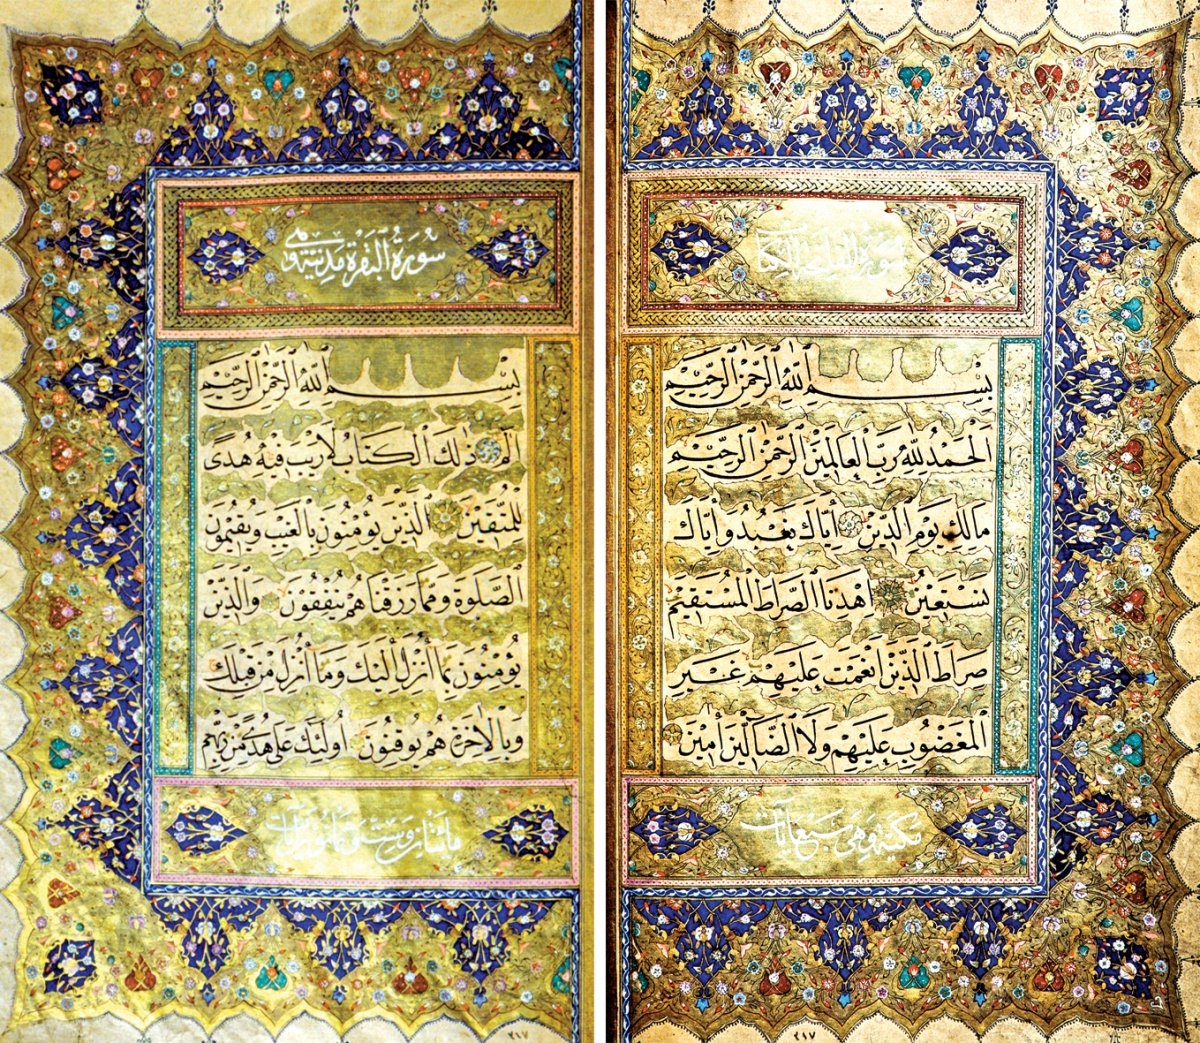 سورة الفاتحة الكتاب
بِسْمِ اللّٰهِ الرَّحْمٰنِ الرَّحِيمِ
الْحَمْدُ لِلّٰهِ رَبِّ الْعَالَمِينَ الرَّحْمٰنِ الرَّحِيمِ
مَالِكِ يَوْمِ الدِّينِ إِيَّاكَ نَعْبُدُ وَإِيَّاكَ
نَسْتَعِينُ اِهْدِنَا الصِّرَاطَ الْمُسْتَقِيمَ
صِرَاطَ الَّذِينَ أَنْعَمْتَ عَلَيْهِمْ غَيْرِ
الْمَغْضُوبِ عَلَيْهِمْ وَلَا الضَّالِّينَ أٰمِينَ
مكية وهي سبع آيات
٢١٧
سُورَةُ الْبَقَرَةِ مَدَنِيَّةٌ وَهِيَ
بِسْمِ اللّٰهِ الرَّحْمٰنِ الرَّحِيمِ
الٓمٓ ذٰلِكَ الْكِتَابُ لَا رَيْبَ فِيهِ هُدًى
لِلْمُتَّقِينَ الَّذِينَ يُؤْمِنُونَ بِالْغَيْبِ وَيُقِيمُونَ
الصَّلٰوةَ وَمِمَّا رَزَقْنَاهُمْ يُنْفِقُونَ وَالَّذِينَ
يُؤْمِنُونَ بِمَا أُنْزِلَ إِلَيْكَ وَمَا أُنْزِلَ مِنْ قَبْلِكَ
وَبِالْاٰخِرَةِ هُمْ يُوقِنُونَ أُولٰئِكَ عَلٰى هُدًى مِنْ رَبِّهِمْ
مائتان وست وثمانون آيات
٢١٧